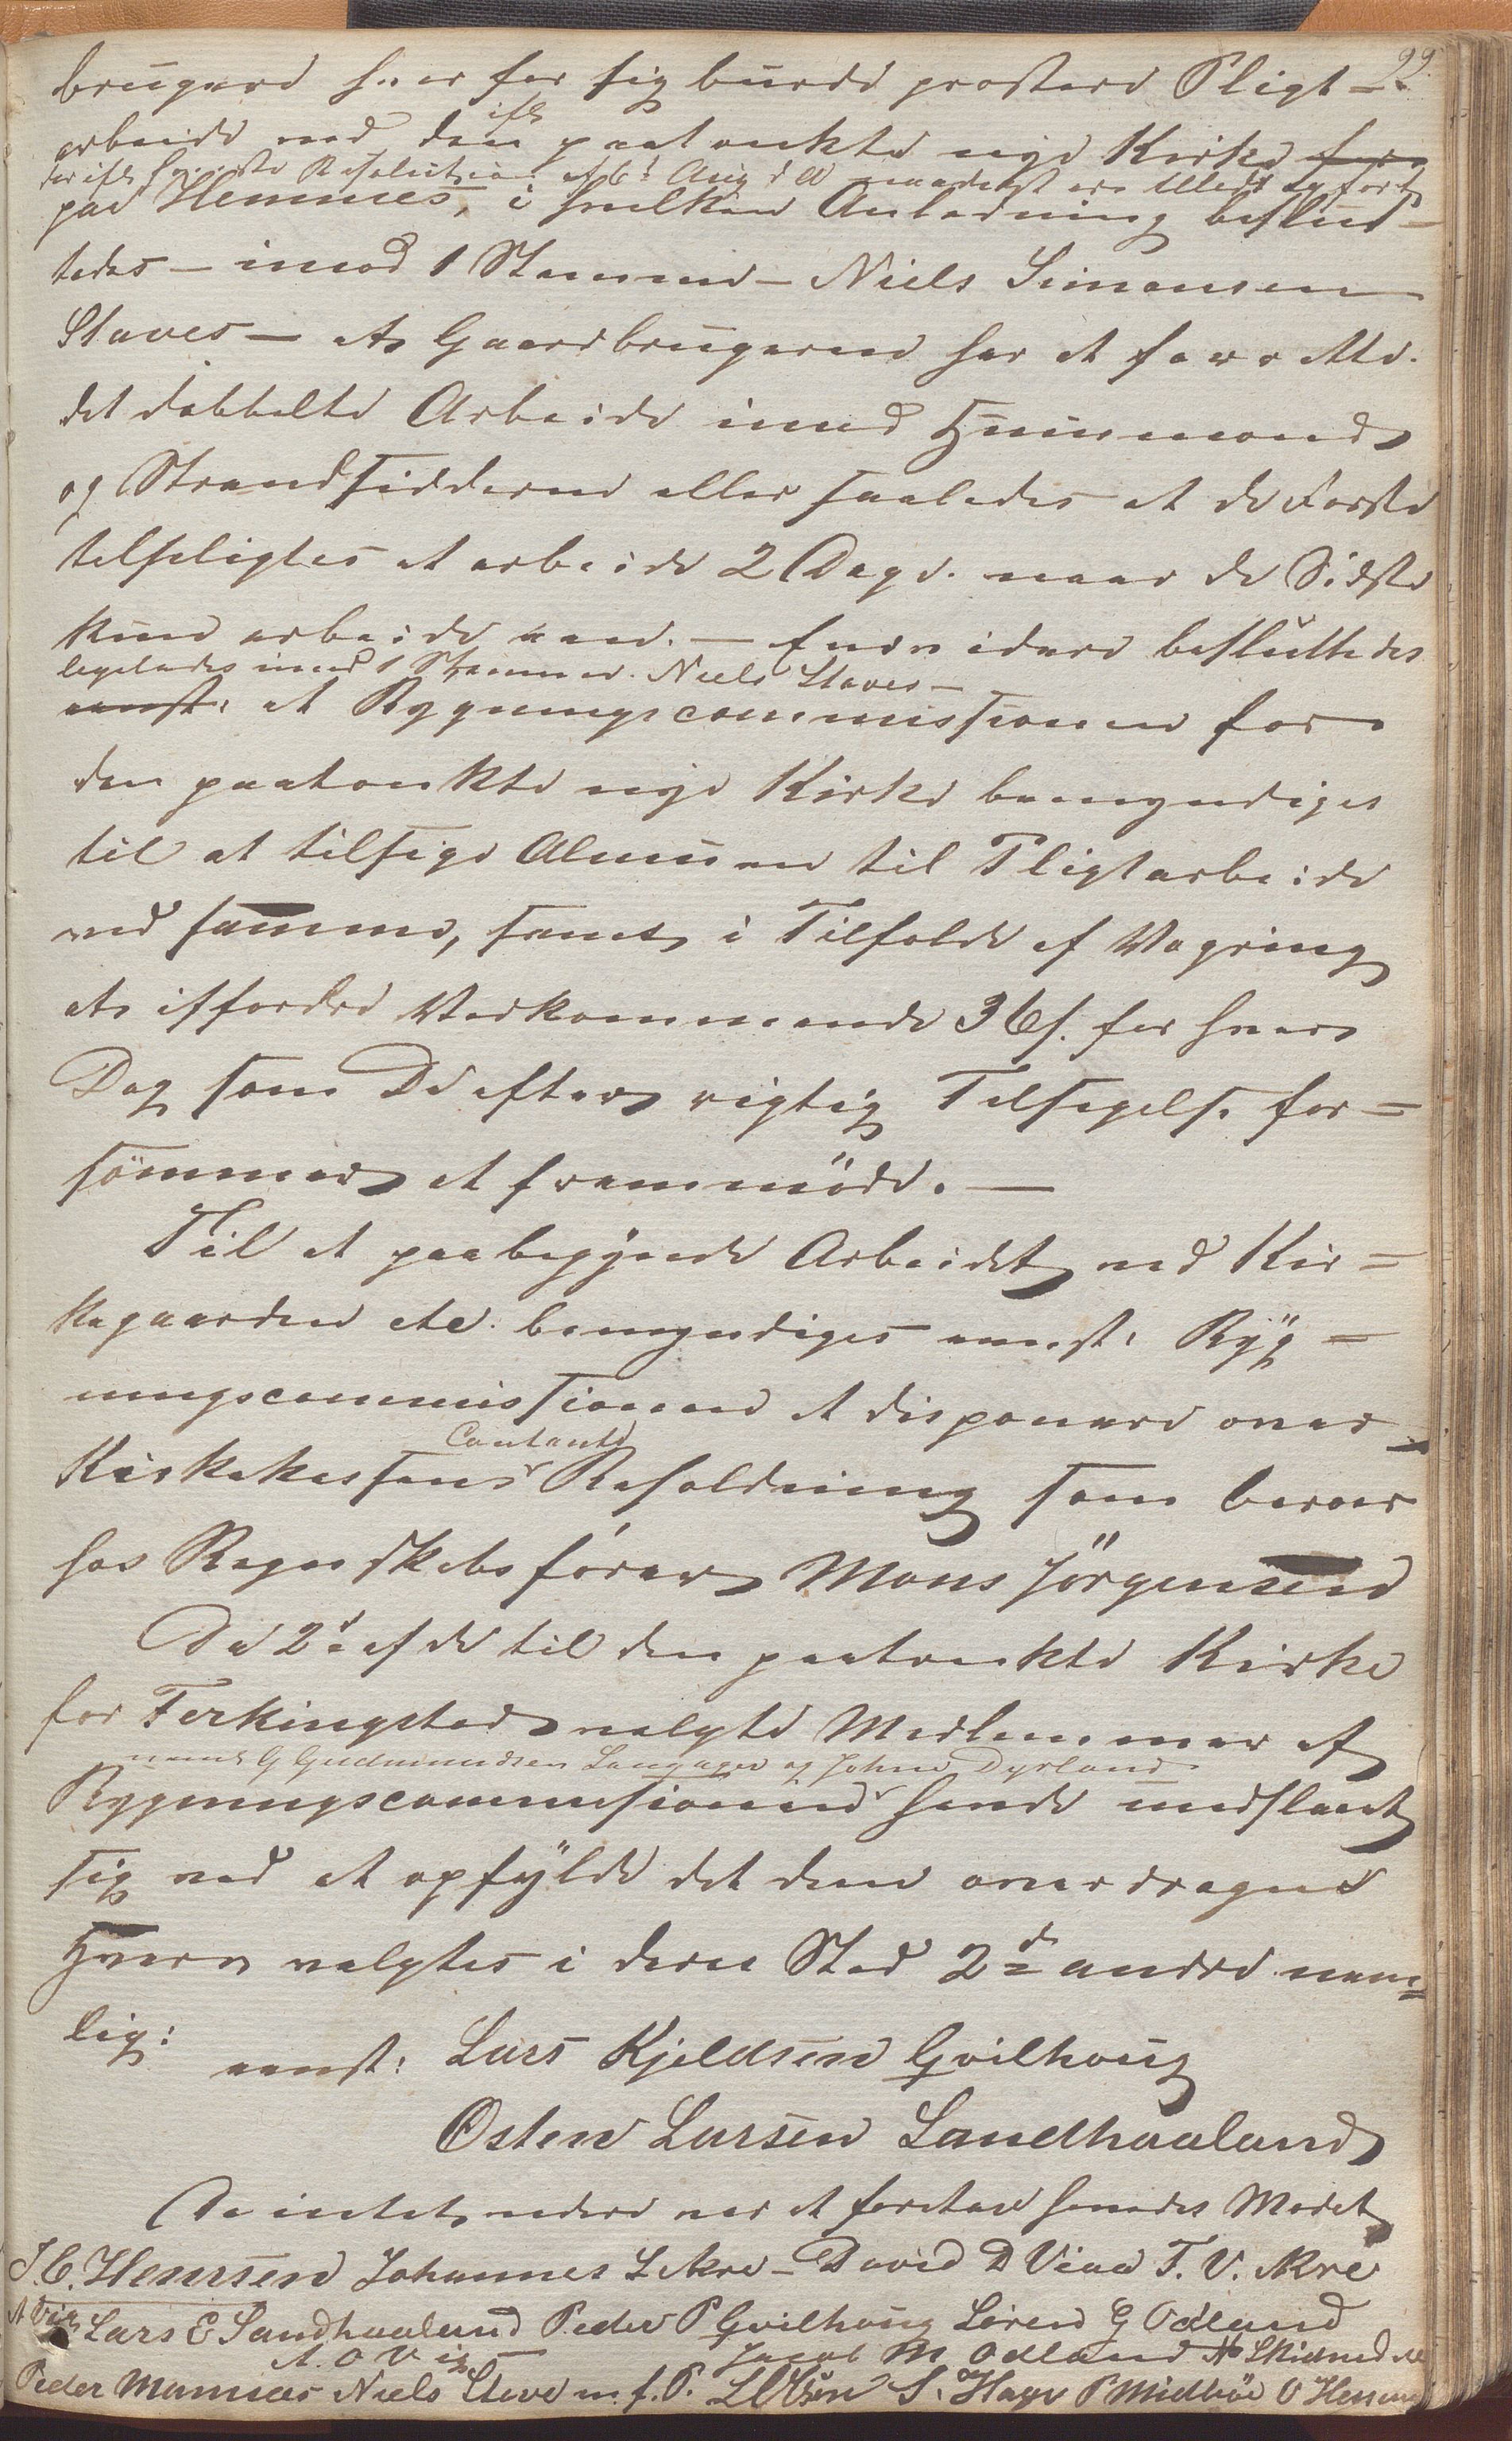 99.
brugere hver for sig burde præstere Pligt-
arbeide ved den paatænkte nye Kirke
der ifl høieste Resolution af 6te Aug d A tillades opført
paa Hemnes, i hvilken Anledning beslut-
tedes – imod 1 Stemme – Niels Simonsen
Staves – At Gaardbrugerne har at forrette
det dobbelte Arbeide imod Huusmænd
og Strandsidderne eller saaledes at de Første
tilpligtes at arbeide 2 Dage naar de Sidste
kun arbeide een. – Endvidere besluttedes
ligeledes imod 1 Stemme Niels Staves –
at Bygningscommissionen for
den paatænkte nye Kirke bemyndiges
til at tilsige Almuen til Pligtarbeide
ved samme, samt i Tilfælde af Vægring
at affordre Vedkommende 36 s. for hver
Dag som De efter rigtig Tilsigelse for-
sömmer at fremmöde. –
Til at paabegynde Arbeidet ved Kir-
kegaarden etc. bemyndiges ovenst: Byg-
ningscommissionen at disponere over
Contante
Kirkekassens Beholdning som beroer
hos Regnskabsförer Mons Jörgensen
Da 2de af de til den paatænkte Kirke
for Ferkingstad valgte Medlemmer af
nemlig G Gudmundsen Langager og Johne Dyrland
Bygningscommissionen havde undslaaet
sig ved at opfylde det dem overdragne
Hverv valgtes i deres Sted 2de andre nem-
lig:
ovenst: Lars Kjeldsen Qvilhoug
Osten Larsen Sandhaaland
Da intet videre var at foretage hævedes Mødet
J. C. Hemsen Johannes L Akre – David D Viea T. V. Akre
Lars E Sandhaaland Peder P Qvilhoug Sören G Odland
A. O Vig Jacob M Odland
Peder Munkaas Niels Stave m. f. P. L Olsen S. Hage P Midböe O Hemnes